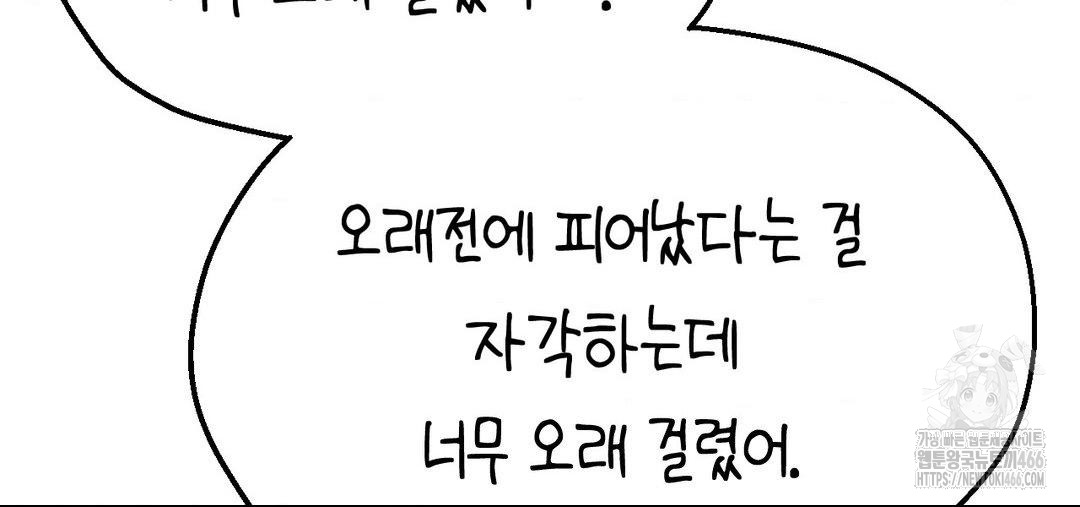 너무 오래 걸렸어
오래전에 피어났다는 걸
자각하는데
너무 오래 걸렸어.
가장 빠른 웹툰제공사이트
웹툰왕국뉴토끼466
HTTPS://NEWTOKI466.COM